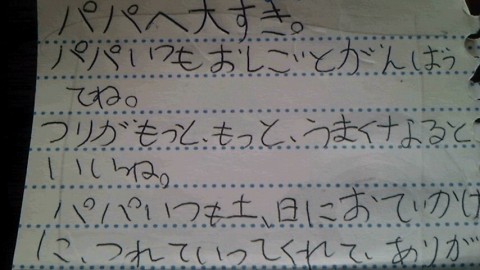 パパへ大すき。
パパいつもおしごとがんばっ
てね。
つりがもっと、もっと、うまくなよると
いいね。
パパいつも土、日におでかけ
に、つれていってくれて、ありが